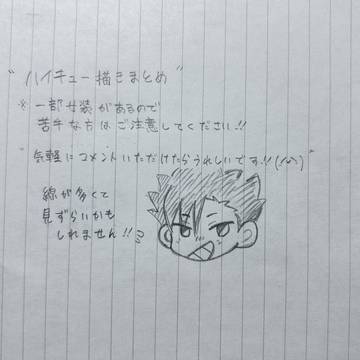 "ハイキュー描きまとめ"
※一部女装があるので
苦手な方はご注意してください!!
"気軽にコメントいただけたらうれしいです!!(^^)"
線が多くて
見ずらいかも
しれません!!